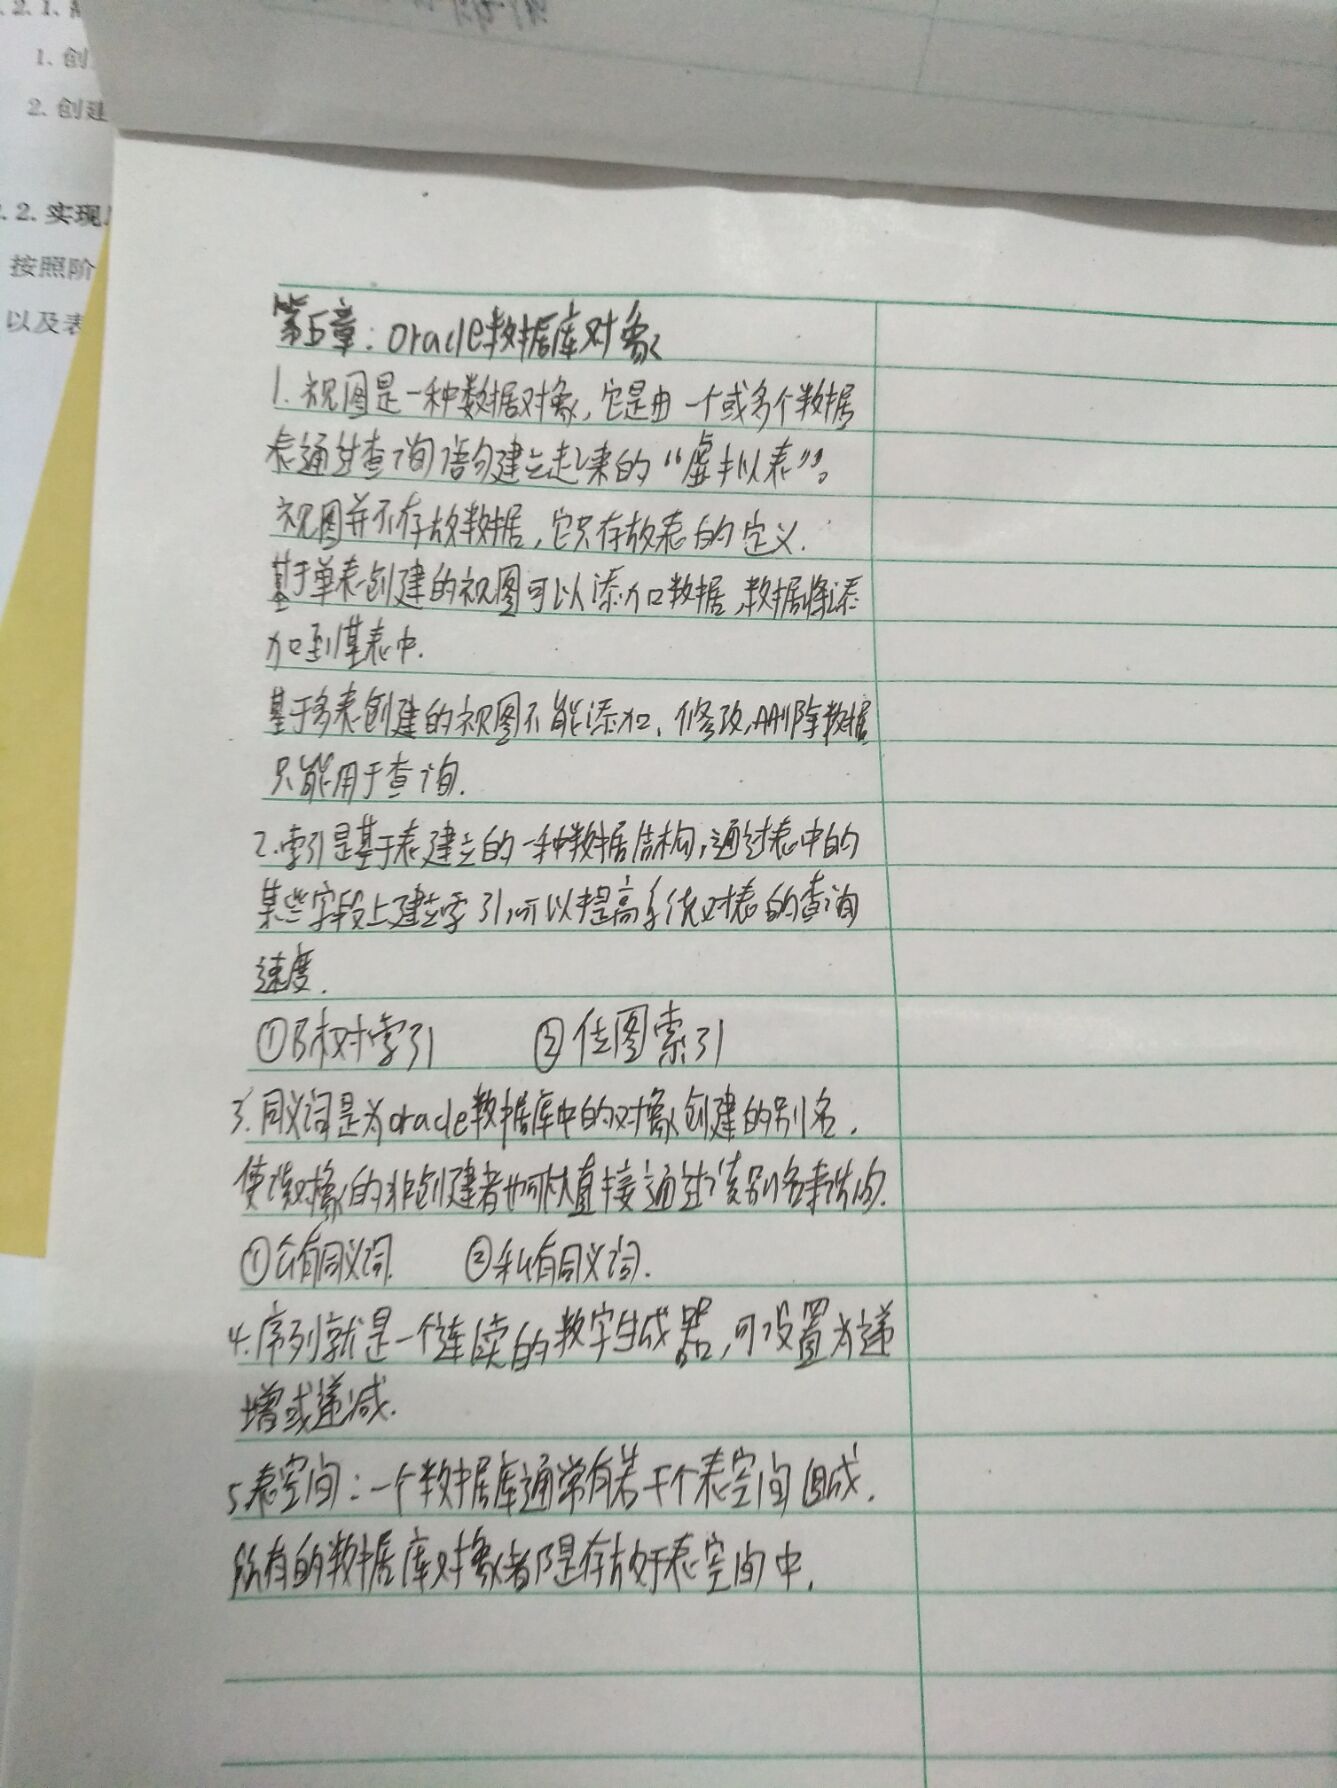 2.1.
1. 创
2. 创建
.2. 实现
按照阶
以及表
第5章：oracle数据库对象
1. 视图是一种数据对象，它是由一个或多个数据
表通过查询语句建立起来的“虚拟表”。
视图并不存放数据，它只存放表的定义.
基于单表创建的视图可以添加数据，数据将添
加到基表中.
基于多表创建的视图不能添加、修改，删除数据
只能用于查询.
2. 索引是基于表建立的一种数据结构，通过表中的
某些字段上建立索引，可以提高系统对表的查询
速度.
①B树索引 ②位图索引
3. 同义词是为oracle数据库中的对象创建的别名.
使该对象的非创建者也可以直接通过该别名来访问.
①公有同义词. ②私有同义词.
4. 序列就是一个连续的数字生成器，可设置为递
增或递减.
5. 表空间：一个数据库通常有若干个表空间组成.
所有的数据库对象都是存放于表空间中.